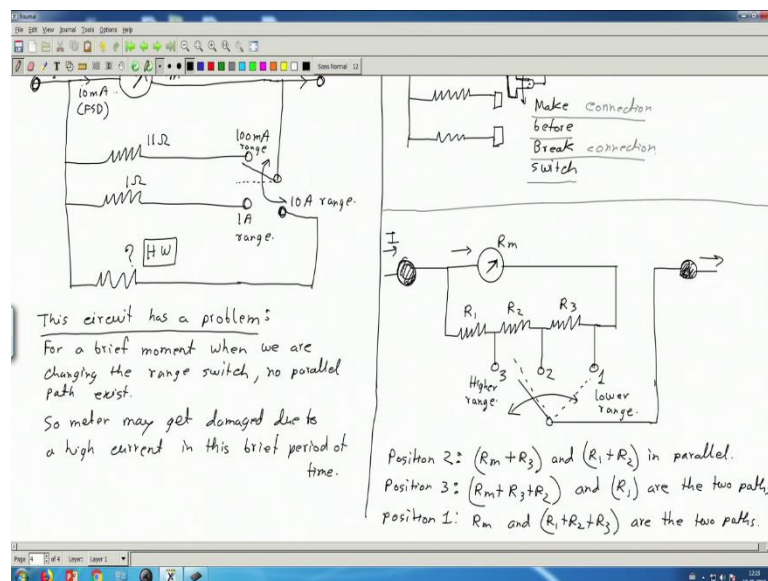 Xournal
File Edit View Journal Tools Options Help
Sans Normal 12
10mA
(FSD)
11Ω
100mA
range
1Ω
1A
range.
10A range.
? HW
This circuit has a problem:
For a brief moment when we are
changing the range switch, no parallel
path exist.
So meter may get damaged due to
a high current in this brief period of
time.
Make connection
before
Break connection
switch
I
Rm
R1 R2 R3
3 2 1
Higher
range.
lower
range.
Position 2: (Rm + R3) and (R1 + R2) in parallel.
Position 3: (Rm + R3 + R2) and (R1) are the two paths
Position 1: Rm and (R1 + R2 + R3) are the two paths.
Page 4 of 4 Layer: Layer 1